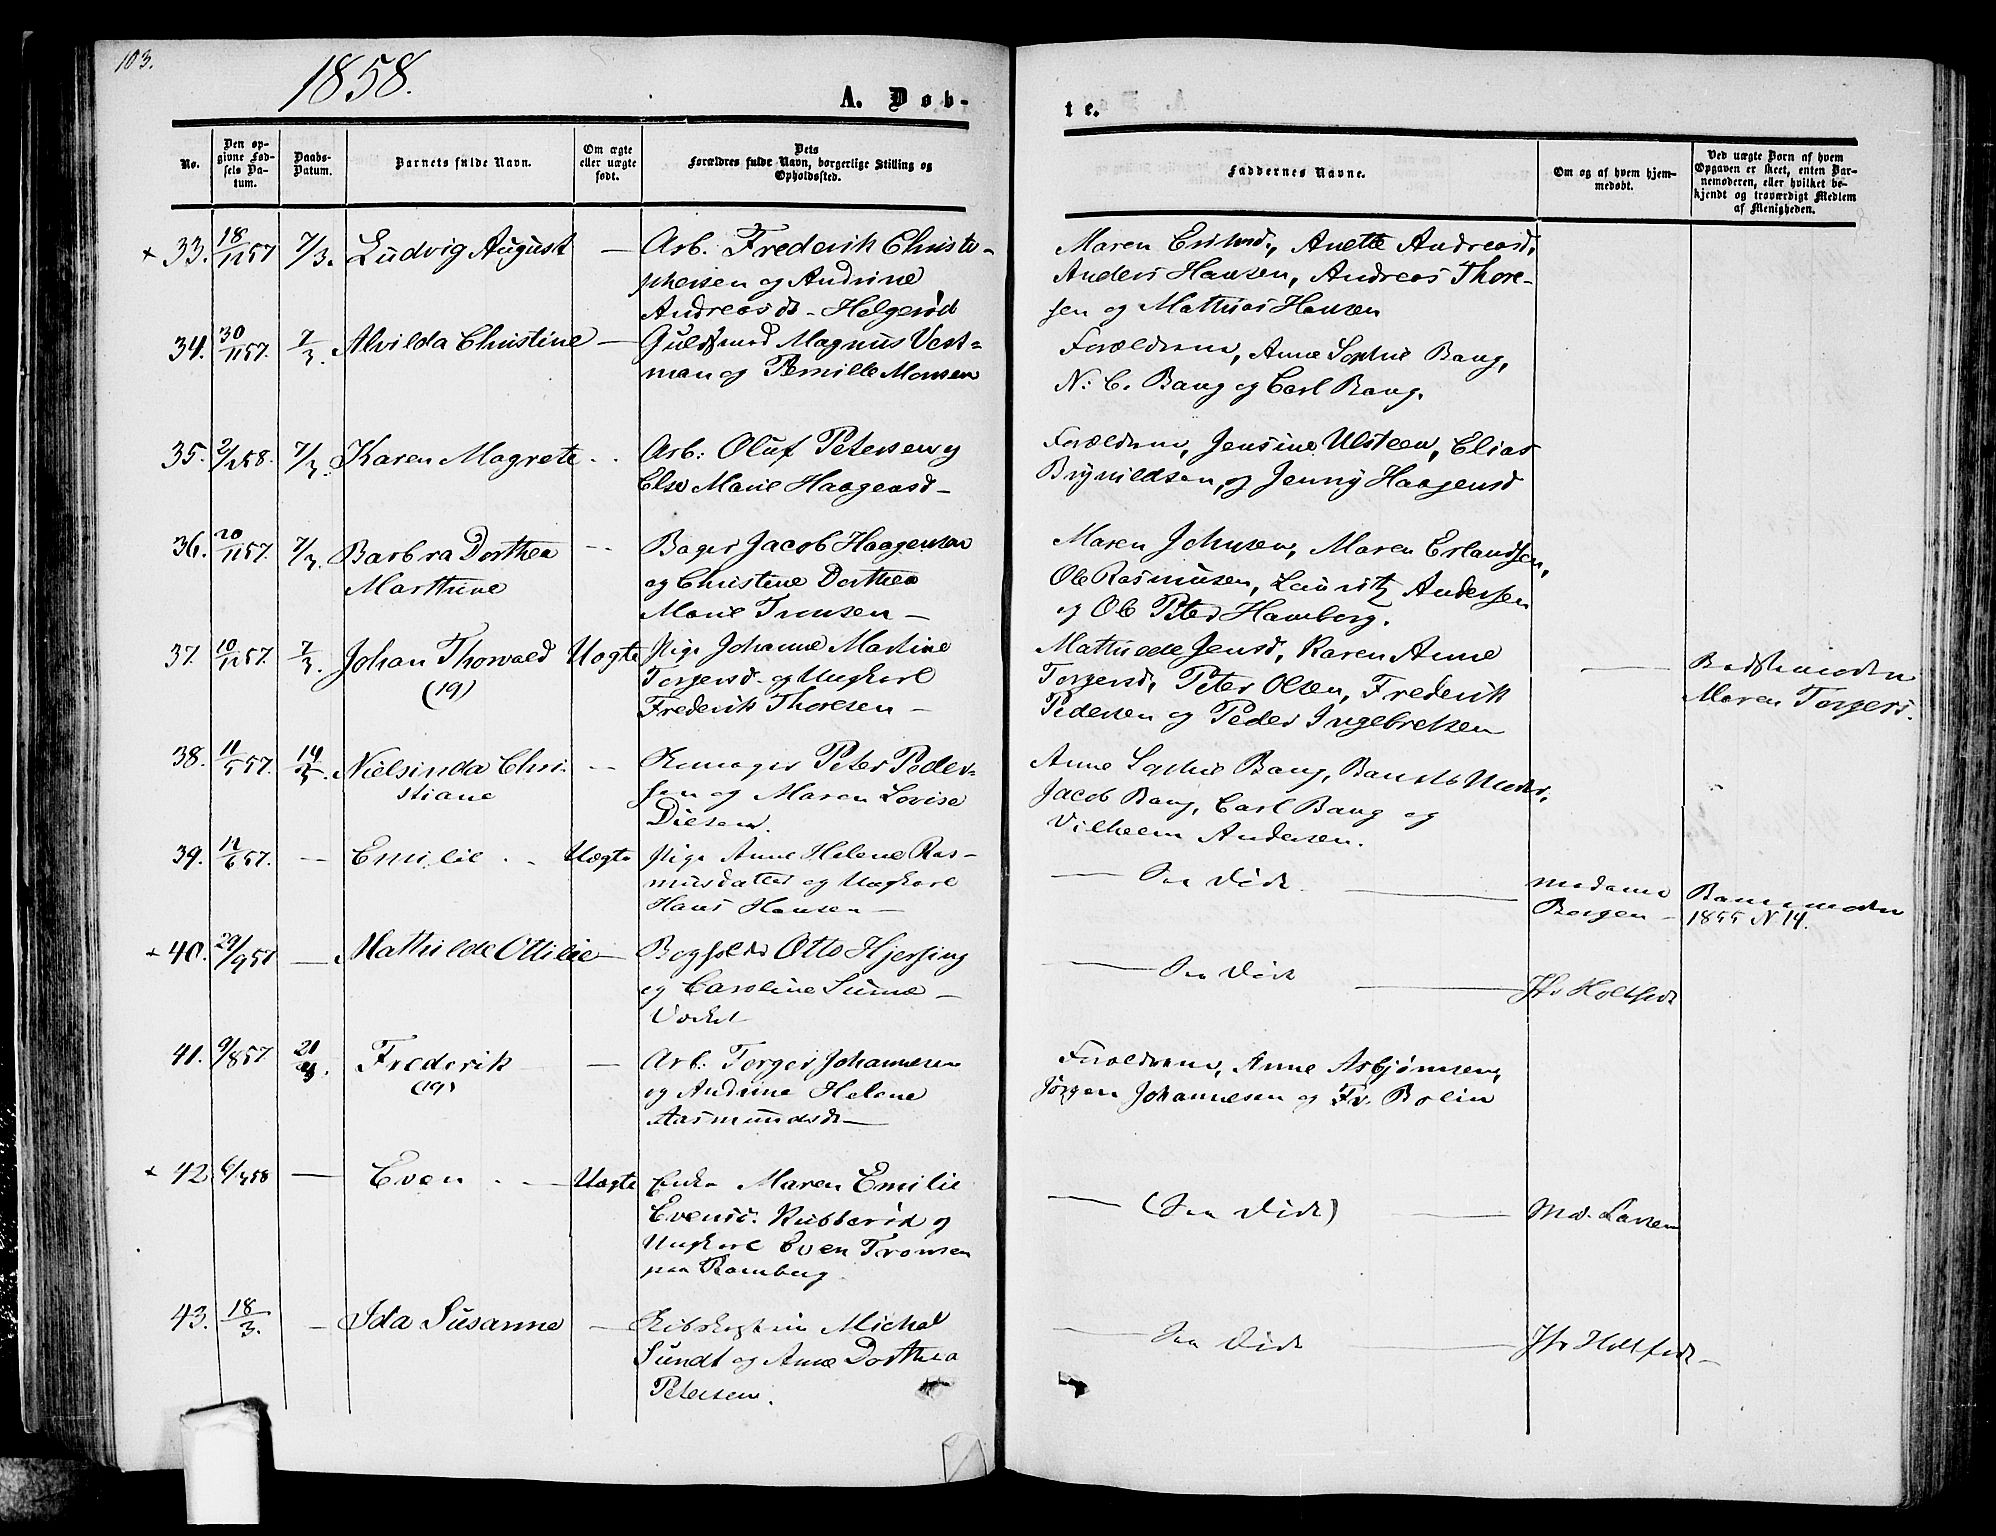 103.
1858.
A. Døb-
te.
No.
Den op-
givne Fød-
sels Da-
tum.
Daabs-
Datum.
Barnets fulde Navn.
Om ægte
eller uægte
født.
Dets
Forældres fulde Navn, borgerlige Stilling og
Opholdssted.
Faddernes Navne.
Om og af hvem hjem-
medøbt.
Ved uægte Børn af hvem
Opgaven er skeet, enten Bar-
nemoderen, eller hvilket be-
kjendt og troværdigt Medlem
af Menigheden.
+ 33. 18/12 57 7/3. Ludvig August — Arb. Frederik Christo-
phersen og Andrine
Andreasd. Helgerød
Maren Erlandsd., Anette Andreasd.,
Anders Hansen, Andreas Thore-
sen og Mathias Hansen
34. 30/11 57. 7/3. Alvilda Christine — Guldsmed Magnus Vest-
man og Pernille Monsen
Forældrene, Anne Sophie Bang,
N. C. Bang og Carl Bang.
35. 2/1 58. 7/3. Karen Magrete Arb: Oluf Petersen og
Else Marie Haagensd —
Forældrene, Jensine Ulsteen, Elias
Brynildsen, og Jenny Haagensd
36. 20/11 57. 7/3. Barbra Dorthea
Marthine
Bager Jacob Haagensen
og Christine Dorthea
Marie Tronsen —
Maren Johnsen, Maren Erlandsen,
Ole Rasmusen, Lauritz Andersen
og Ole Peter Hamborg.
37. 10/12 57. 7/3. Johan Thorvald
(19)
Uægte Pige Johanne Martine
Torgersd. og Ungkarl
Frederik Thoresen —
Mathilde Jensd, Karen Anne
Torgersd, Peter Olsen, Frederik
Pedersen og Peder Ingebretsen
— Bedstemoderen
Maren Torgers.
38. 11/5 57. 14/3 Nielsinda Chri-
stiane
Peter Peder-
sen og Maren Lovise
Diesen.
Anne Sophie Bang,
Jacob Bang, Carl Bang og
Vilhelm Andersen.
39. 12/6 57. Emilie Uægte Pige Anne Helene Ras-
musdatter og Ungkarl
Hans Hansen —
— Saa Død. — Madame
Borgen —
Barnemoderen
1855 N 14.
+ 40. 29/9 57 — Mathilde Ottilie — Bogholder Otto Hjersing
og Caroline —
— Saa Død — Jfr Holtfodt
41. 9/8 57 21/3 Frederik
(19)
— Arb: Torger Johannesen
og Andrine Helene
Aasmundsd —
Forældrene, Anne Asbjørnsen,
Jørgen Johannesen og Fr. Bolin
+ 42. 6/1 58 — Even Uægte Enke Maren Emilie
Evensd. Kubberød og
Ungkarl Even Tronsen
paa Ramberg.
— (Saa Død) — Md. Larsen
43. 18/3. — Ida Susanne — Skibskaptein Michal
Sundt og Anne Dorthea
Petersen.
— Saa Død — Jfr Holtfodt —